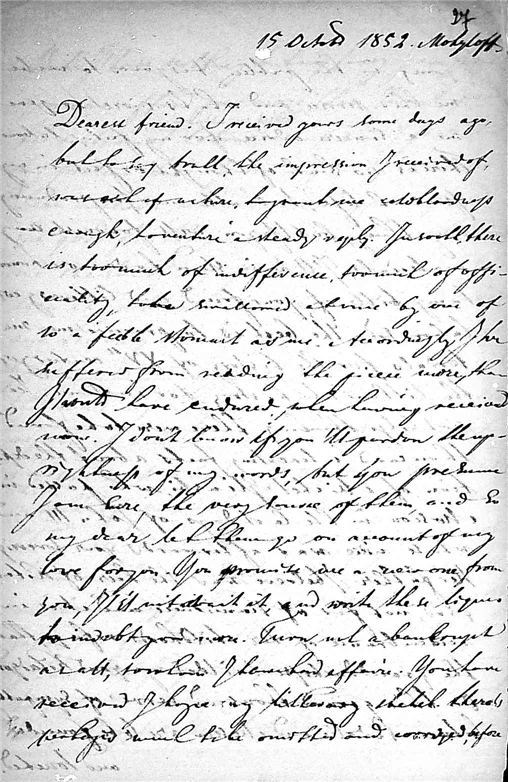 27
15 Octobr 1852. Mohyloff.
Dearest friend. I received yours some days ago,
but to say truth, the impression I received of,
was not of nature, to grant me coldbloodness
enough, to venture a steady reply. In sooth, there
is too much of indifference, too much of offi-
ciality, to be swallowed at once by one of
so a feeble stomach as me. Accordingly, I ha
suffered from reading the piece more, than
I have endured, when having received
none. I don't know if you'll pardon the up-
rightness of my words, but you presume
I am sure, the very source of them, and so
my dear, let them go on account of my
love for you. You promise me a new one from
you. I wait it, and write these lignes
to indebt you now. Turn not a bankrupt
as all, to whom I have had affairs. You have
received I hope my litterary sketch. there is
perhaps much to be omitted and corriged, before